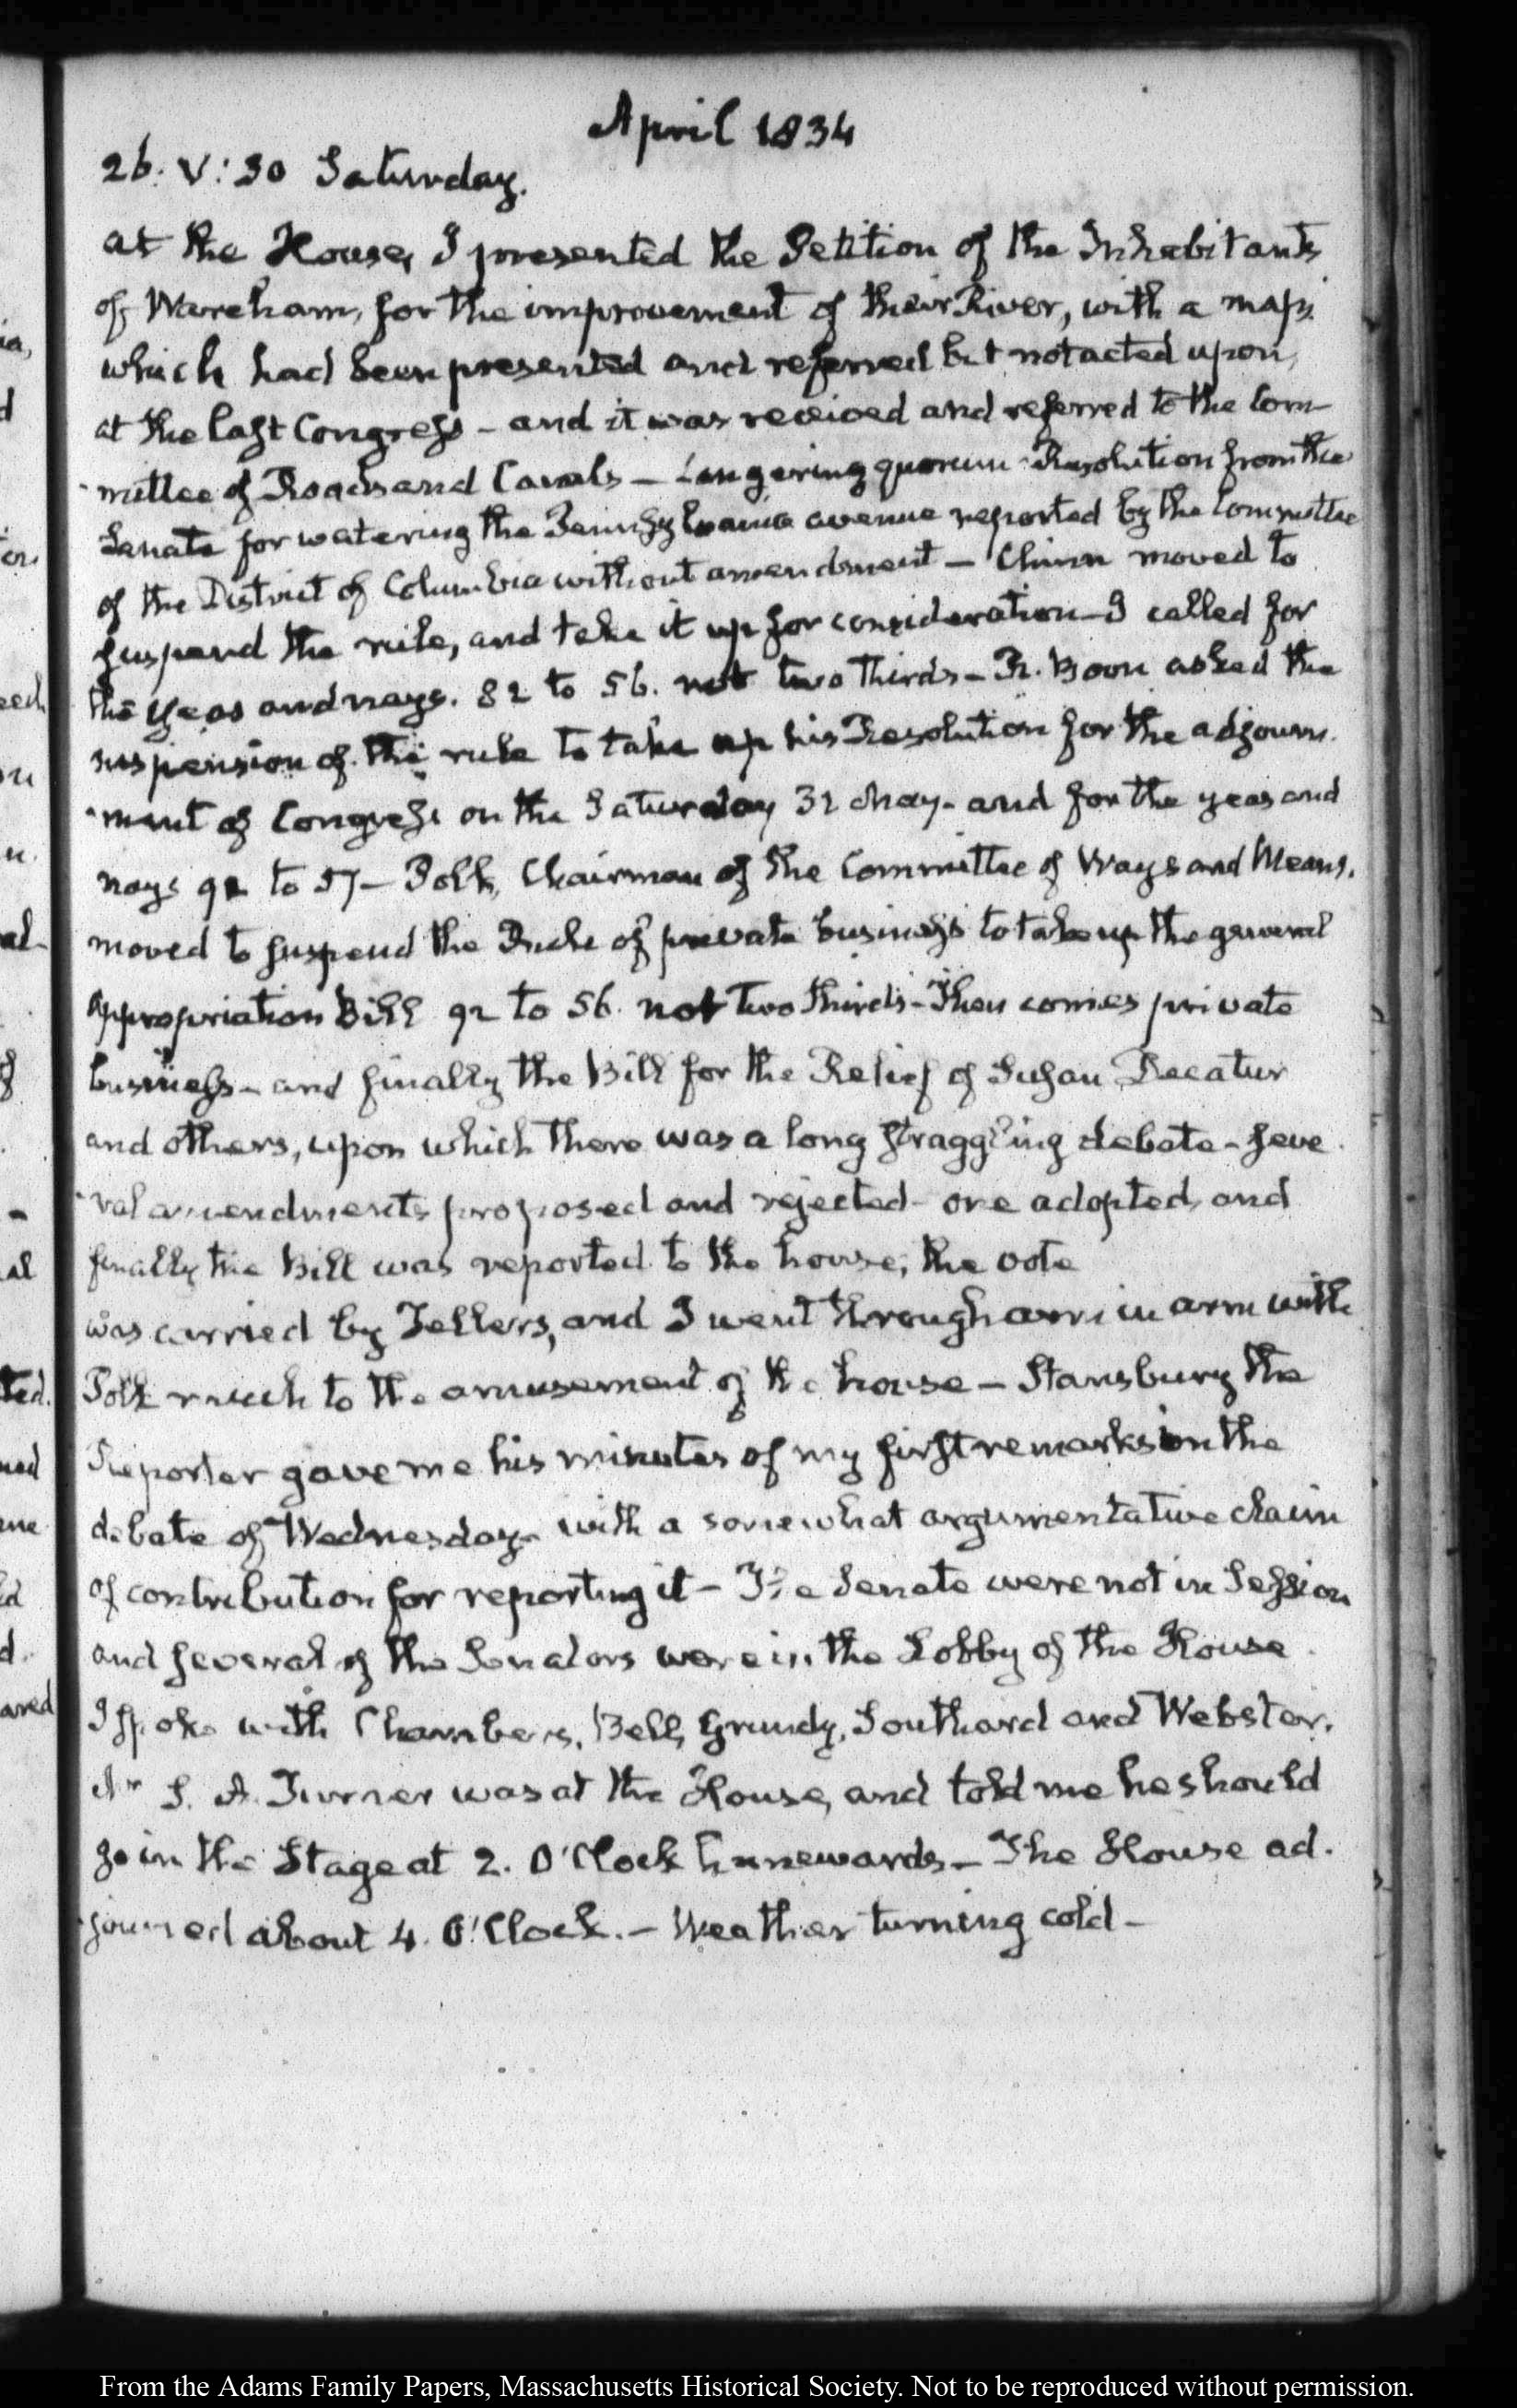 April 1834
26. V:30 Saturday.
at the House, I presented the Petition of the Inhabitants
of Wareham, for the improvement of their River, with a map,
which had been presented and referred but not acted upon,
at the last Congress - and it was received and referred to the Com-
mittee of Roads and Canals — Lingering quorum - Resolution from the
Senate for watering the Pennsylvania avenue reported by the Committee
of the District of Columbia without amendment — Chinn moved to
suspend the rule, and take it up for consideration - I called for
the yeas and nays. 82 to 56. not two thirds - R. Boon asked the
suspension of the rule to take up his Resolution for the adjourn-
ment of Congress on the Saturday 31 May - and for the yeas and
nays 92 to 57 - Polk, Chairman of the Committee of Ways and Means,
moved to suspend the Rule of private business to take up the general
appropriation Bill 92 to 56. not two thirds - Then comes private
business - and finally the Bill for the Relief of Susan Decatur
and others, upon which there was a long straggling debate - seve-
ral amendments proposed and rejected - one adopted, and
finally the Bill was reported to the house; the vote
was carried by Tellers, and I went through arm in arm with
Polk much to the amusement of the house — Stansbury the
Reporter gave me his minutes of my first remarks on the
debate of Wednesday - with a somewhat argumentative claim
of contribution for reporting it - The Senate were not in Session
and several of the Senators were in the Lobby of the House.
I spoke with Chambers, Bell, Grundy, Southard and Webster.
Mr S. A. Turner was at the House, and told me he should
go in the Stage at 2. O'Clock homewards - The House ad-
journed about 4. O'Clock. - Weather turning cold -
From the Adams Family Papers, Massachusetts Historical Society. Not to be reproduced without permission.